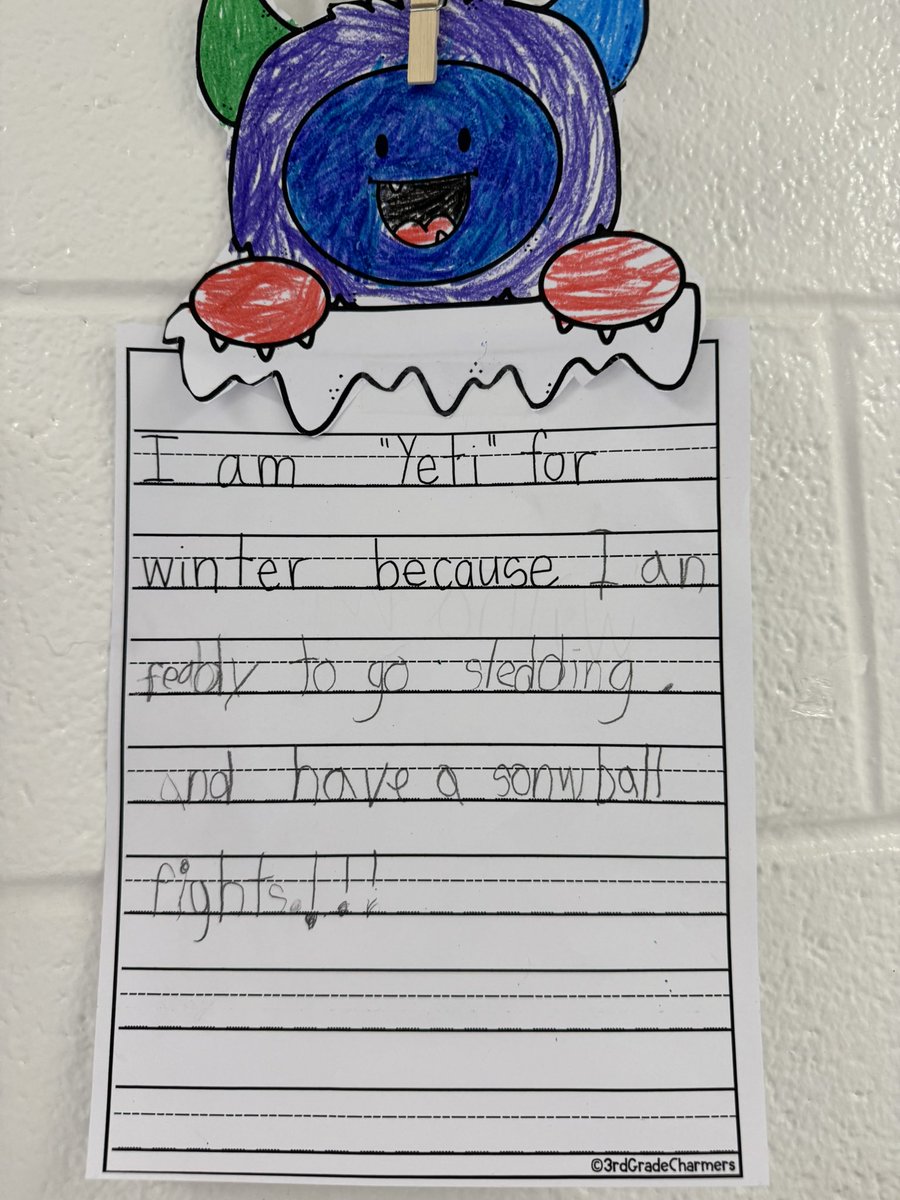 I am "Yeti" for
winter because I an
ready to go sledding.
and have a sonwball
fights.!!!
©3rdGradeCharmers